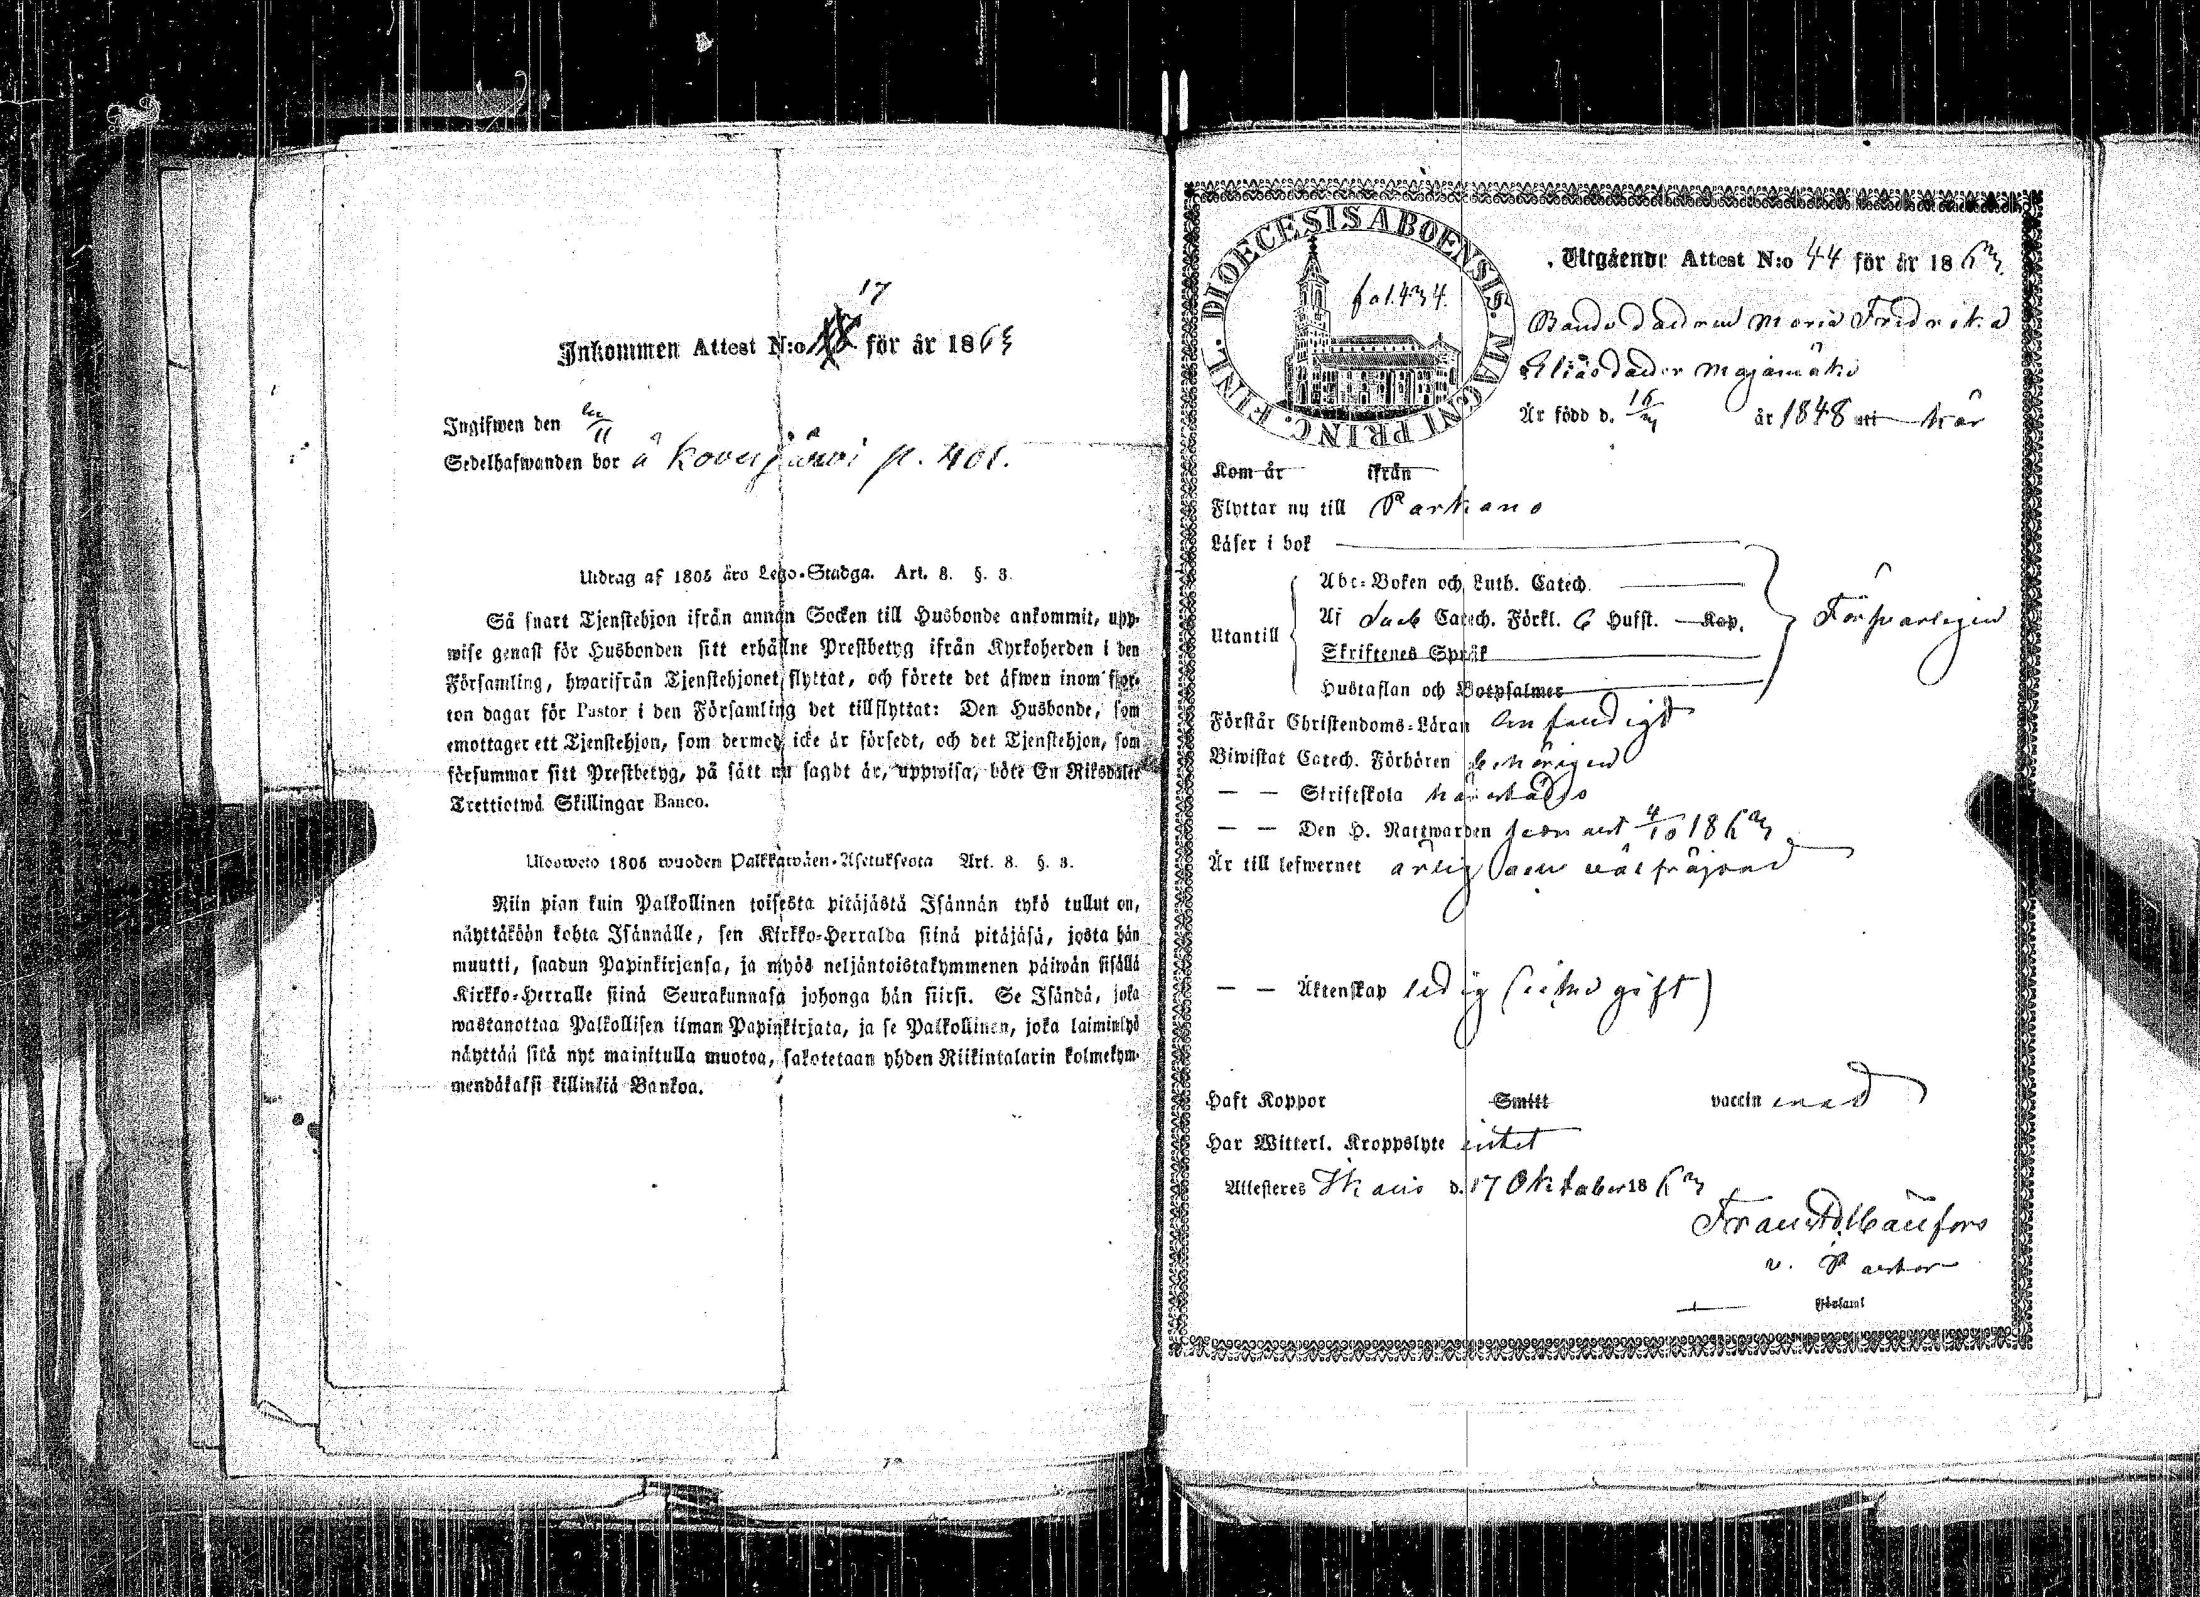 17
Inkommen Attest N:o 18 för år 1863
Ingifwen den /11
Sedelhafwanden bor å Kovesjärvi p. 401.
Utdrag af 1805 års Lego-Stadga. Art. 8. §. 3.
Så snart Tjenstehjon ifrån annan Socken till Husbonde ankommit, upp-
wise genast för Husbonden sitt erhållne Prestbetyg ifrån Kyrkoherden i den
Församling, hwarifrån Tjenstehjonet flyttat, och förete det äfwen inom fjor-
ton dagar för Pastor i den Församling det tillflyttat: Den Husbonde, som
emottager ett Tjenstehjon, som dermed icke är försedt, och det Tjenstehjon, som
försummar sitt Prestbetyg, på sätt nu sagdt är, uppwisa, böte En Riksdaler
Trettiotwå Skillingar Banco.
Ulosweto 1805 wuoden Palkkawäen-Asetuksesta Art. 8. §. 3.
Niin pian kuin Palkollinen toisesta pitäjästä Isännän tykö tullut on,
näyttäköön kohta Isännälle, sen Kirkko-Herralda siinä pitäjäsä, josta hän
muutti, saadun Papinkirjansa, ja myös neljäntoistakymmenen päiwän sisällä
Kirkko-Herralle siinä Seurakunnasa johonga hän siirsi. Se Isändä, joka
wastanottaa Palkollisen ilman Papinkirjata, ja se Palkollinen, joka laiminlyö
näyttää sitä nyt mainitulla muotoa, sakotetaan yhden Riikintalarin kolmekym-
mendäkaksi killinkiä Bankoa.
DIOECESIS ABOENSIS. MAGNI PRINC. FINL.
fol. 434.
Utgående Attest N:o 44 för år 1863
Bondedottren Maria Fredrika
Eliasdotter Majamäki
Är född d. 16/3 år 1848 uti här
Kom år ifrån
Flyttar nu till Parkano
Läser i bok
Utantill
Abc-Boken och Luth. Catech.
Af Catech. Förkl. 6 Hufst. Kop.
Skriftenes Språk
Hustaflan och Botpsalmer
Försvarligen
Förstår Christendoms-Läran
Biwistat Catech. Förhören behörigen
— — Skriftskola härstädes
— — Den H. Nattwarden senast 4/10 1863
Är till lefwernet ärlig och välfräjdad
— — Äktenskap ledig (icke gift)
Haft Koppor Smitt vaccin med
Har Witterl. Kroppslyte intet
Attesteres Ikalis d. 17 Oktober 1863
v. Pastor
Församl